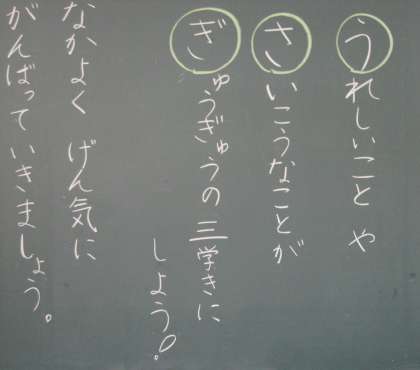 うれしいことや
さいこうなことが
ぎゅうぎゅうの三学きに
しよう!
なかよく げん気に
がんばっていきましょう。